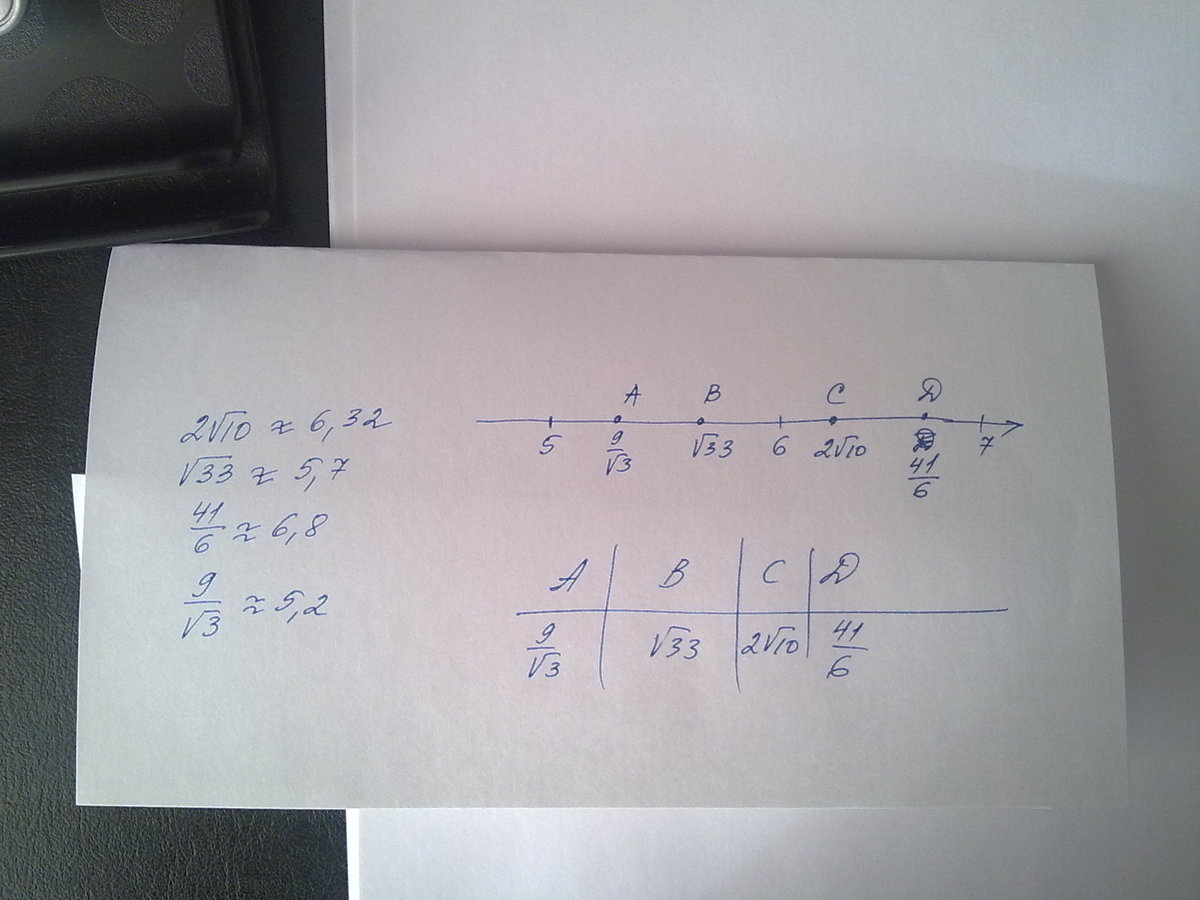 2√10 ≈ 6,32
√33 ≈ 5,7
41/6 ≈ 6,8
9/√3 ≈ 5,2
A B C D
5 9/√3 √33 6 2√10 41/6 7
A B C D
9/√3 √33 2√10 41/6